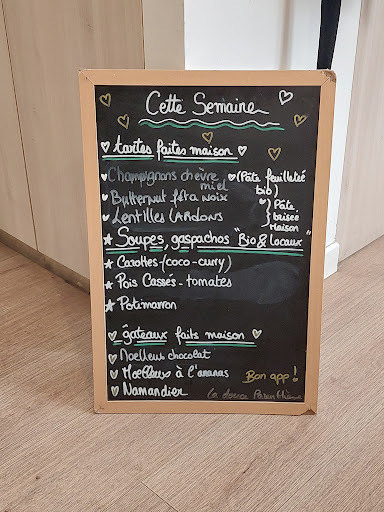 Cette Semaine
tartes faites maison
Champignons chèvre miel (Pâte feuilletée bio)
Butternut féta noix
Lentilles lardons } Pâte brisée maison
Soupes, gaspachos "Bio & locaux"
Carottes (coco-curry)
Pois Cassés - tomates
Potimarron
gâteaux faits maison
Moelleux chocolat
Moelleux à l'ananas
Namandier
Bon app!
La douce